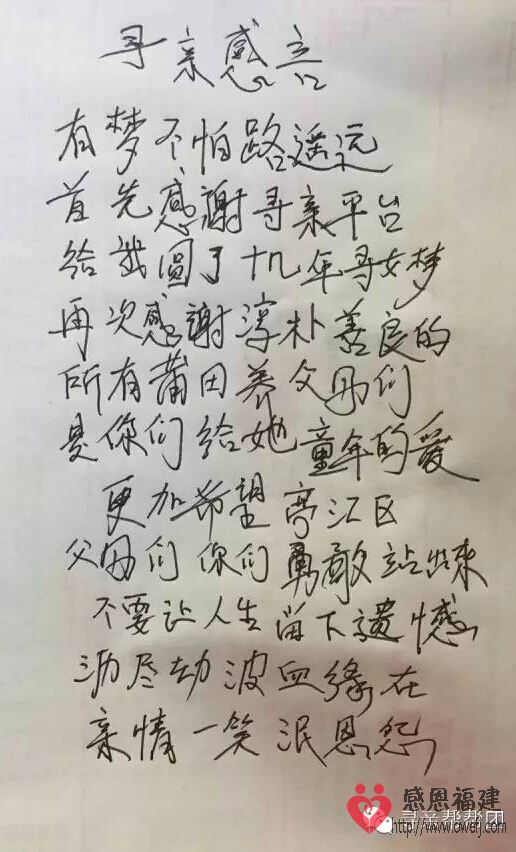 寻亲感言
有梦不怕路遥远
首先感謝寻亲平台
给我圆了十几年寻女梦
再次感謝淳朴善良的
所有莆田养父母们
是你们给她童年的爱
更加希望亭江区
父母们你们勇敢站出来
不要让人生留下遗憾
沥尽劫波血缘在
亲情一笑泯恩怨
感恩福建
寻亲帮帮团
http://www.owefj.com